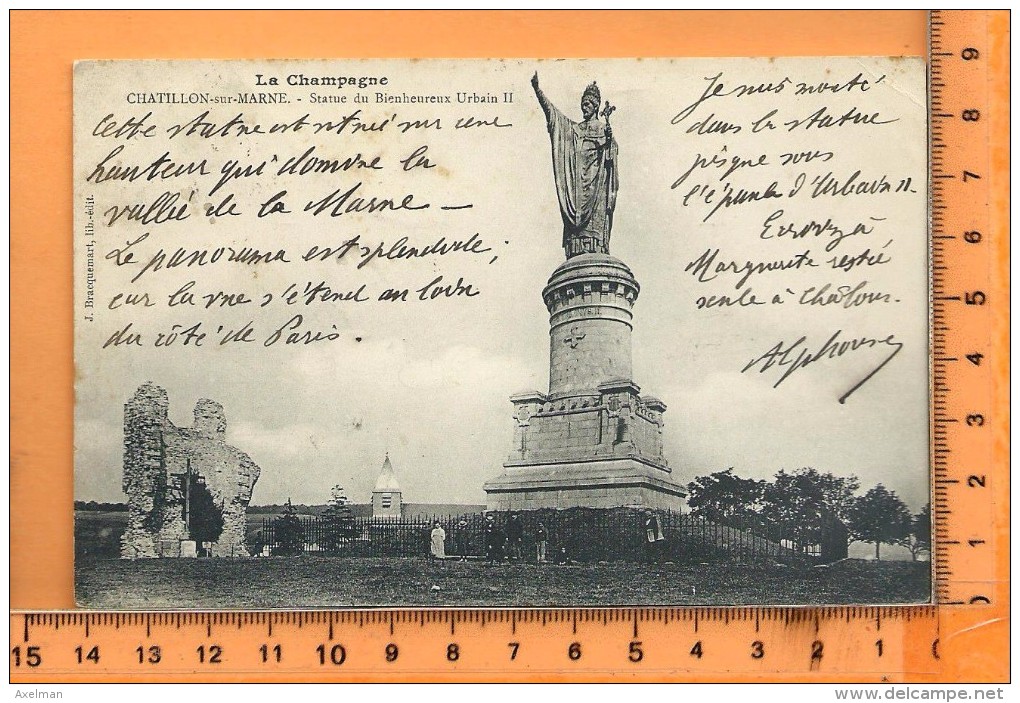 La Champagne
CHATILLON-sur-MARNE. - Statue du Bienheureux Urbain II
J. Bracquemart, lib.-édit.
Cette statue est située sur une
hauteur qui domine la
vallée de la Marne —
Le panorama est splendide;
car la vue s'étend au loin
du côté de Paris.
Je suis monté
dans la statue
jusque sous
l'épaule d'Urbain II.
Ecrivez à
Marguerite restée
seule à Châlons.
Alphonse
9
8
7
6
5
4
3
2
1
0
15 14 13 12 11 10 9 8 7 6 5 4 3 2 1 0
Axelman
www.delcampe.net